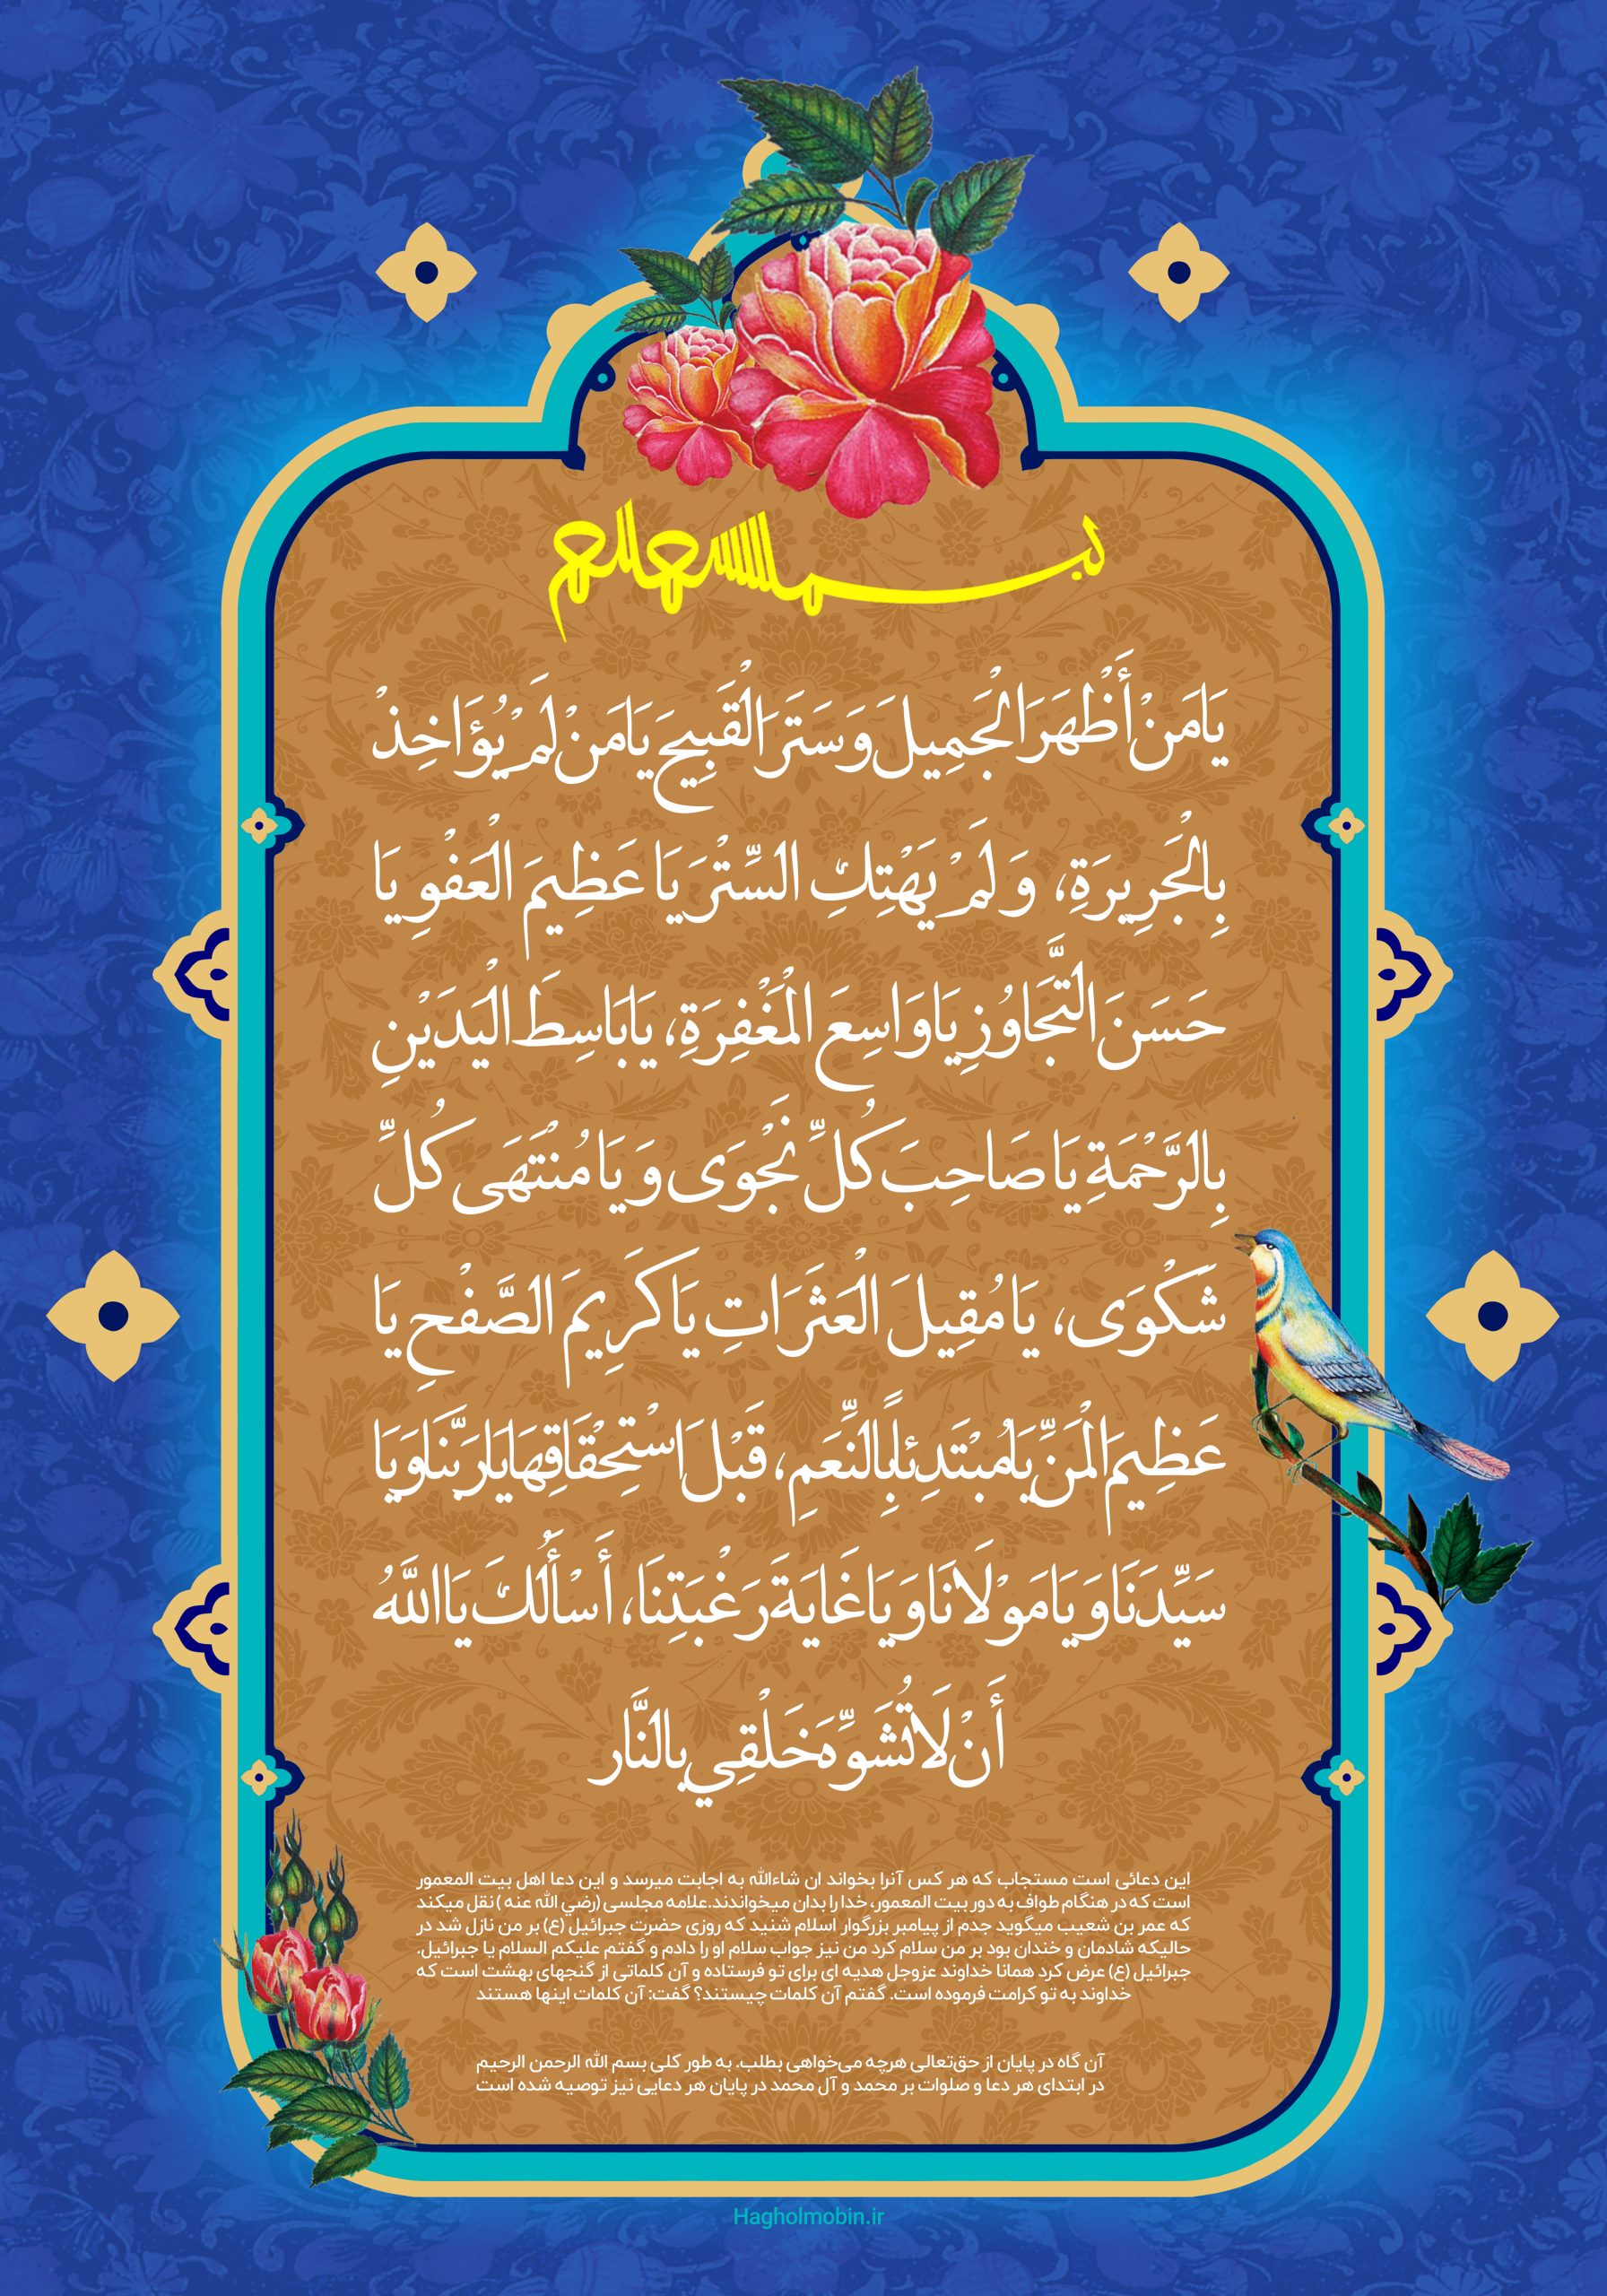 بسم الله الرحمن الرحیم
يَا مَنْ أَظْهَرَ الْجَمِيلَ وَ سَتَرَ الْقَبِيحَ يَا مَنْ لَمْ يُؤَاخِذْ
بِالْجَرِيرَةِ، وَ لَمْ يَهْتِكِ السِّتْرَ يَا عَظِيمَ الْعَفْوِ يَا
حَسَنَ التَّجَاوُزِ يَا وَاسِعَ الْمَغْفِرَةِ، يَا بَاسِطَ الْيَدَيْنِ
بِالرَّحْمَةِ يَا صَاحِبَ كُلِّ نَجْوَى وَ يَا مُنْتَهَى كُلِّ
شَكْوَى، يَا مُقِيلَ الْعَثَرَاتِ يَا كَرِيمَ الصَّفْحِ يَا
عَظِيمَ الْمَنِّ يَا مُبْتَدِئاً بِالنِّعَمِ، قَبْلَ اسْتِحْقَاقِهَا يَا رَبَّنَا وَ يَا
سَيِّدَنَا وَ يَا مَوْلَانَا وَ يَا غَايَةَ رَغْبَتِنَا، أَسْأَلُكَ يَا اللَّهُ
أَنْ لَا تُشَوِّهَ خَلْقِي بِالنَّار
این دعائی است مستجاب که هر کس آنرا بخواند ان شاءالله به اجابت میرسد و این دعا اهل بیت المعمور
است که در هنگام طواف به دور بیت المعمور، خدا را بدان میخواندند.علامه مجلسی (رضي الله عنه ) نقل میکند
که عمر بن شعیب میگوید جدم از پیامبر بزرگوار اسلام شنید که روزی حضرت جبرائیل (ع) بر من نازل شد در
حالیکه شادمان و خندان بود بر من سلام کرد من نیز جواب سلام او را دادم و گفتم علیکم السلام یا جبرائیل.
جبرائیل (ع) عرض کرد همانا خداوند عزوجل هدیه ای برای تو فرستاده و آن کلماتی از گنجهای بهشت است که
خداوند به تو کرامت فرموده است. گفتم آن کلمات چیستند؟ گفت: آن کلمات اینها هستند
آن گاه در پایان از حق‌تعالی هرچه می‌خواهی بطلب. به طور کلی بسم الله الرحمن الرحیم
در ابتدای هر دعا و صلوات بر محمد و آل محمد در پایان هر دعایی نیز توصیه شده است
Hagholmobin.ir